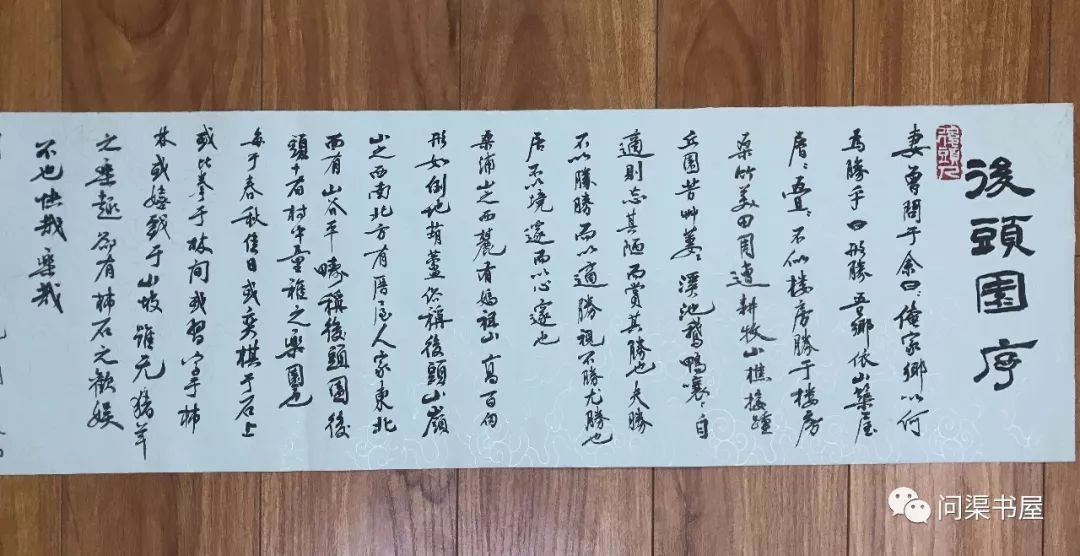 後頭園序
後頭人
妻曾問于余曰：俺家鄉以何
為勝乎曰形勝吾鄉依山築屋
層：疊：不似樓房勝于樓房
桑竹美田周遭耕牧山樵接踵
丘園芳艸萋：溪池鵝鴨嚷：自
適則忘其陋而賞其勝也夫勝
不以勝勝而以適勝視不勝尤勝也
居不以境邃而以心邃也
桑浦山之西麓有媽祖山高百仞
形如倒地葫蘆俗稱後頭山嶺
山之西南北方有厝屋人家東北
而有山谷平疇稱後頭園後
頭十者村中童稚之樂園也
每于春秋佳日或奕棋于石上
或比拳于林間或習字于柿
林或嬉戲于山坡雖无豬羊
之樂趣卻有柿石之歡娛
不也快哉樂哉
问渠书屋